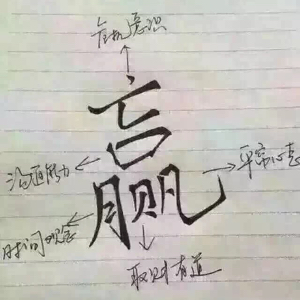 危机意识
赢
沟通能力
平常心态
时间观念
取财有道